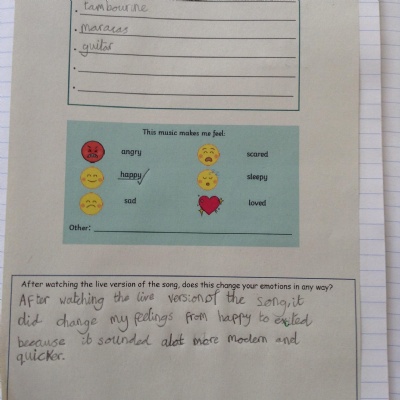 . tambourine
. maracas
. guitar
.
.
This music makes me feel:
angry
scared
happy ✓
sleepy
sad
loved
Other:
After watching the live version of the song, does this change your emotions in any way?
After watching the live version of the song, it
did change my feelings from happy to exited
because it sounded alot more modern and
quicker.